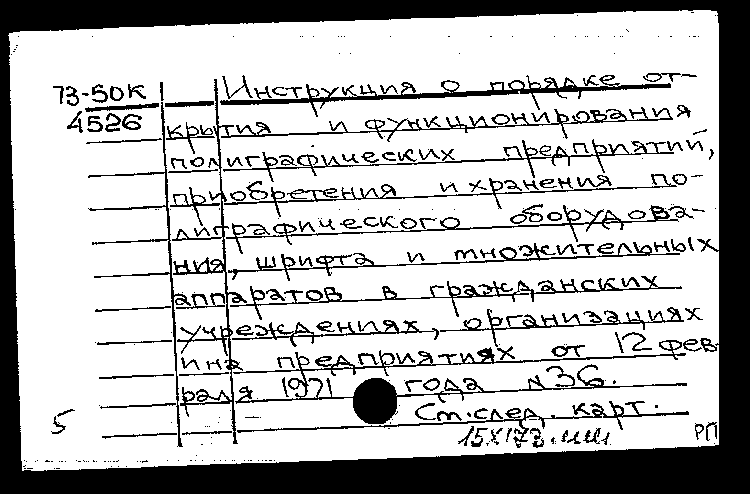 73-50К Инструкция о порядке от-
4526 крытия и функционирования
полиграфических предприятий,
приобретения и хранения по-
лиграфического оборудова-
ния, шрифта и множительных
аппаратов в гражданских
учреждениях, организациях
и на предприятиях от 12 фев-
раля 1971 года №36.
5 Ст. след. карт.
РП